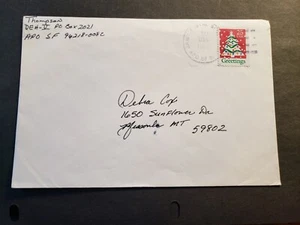 Thompson
DEH-       PO Box 2021
APO SF 96218-008C
Greetings
Debra Cox
1650 Sunflower Dr
Missoula MT
59802